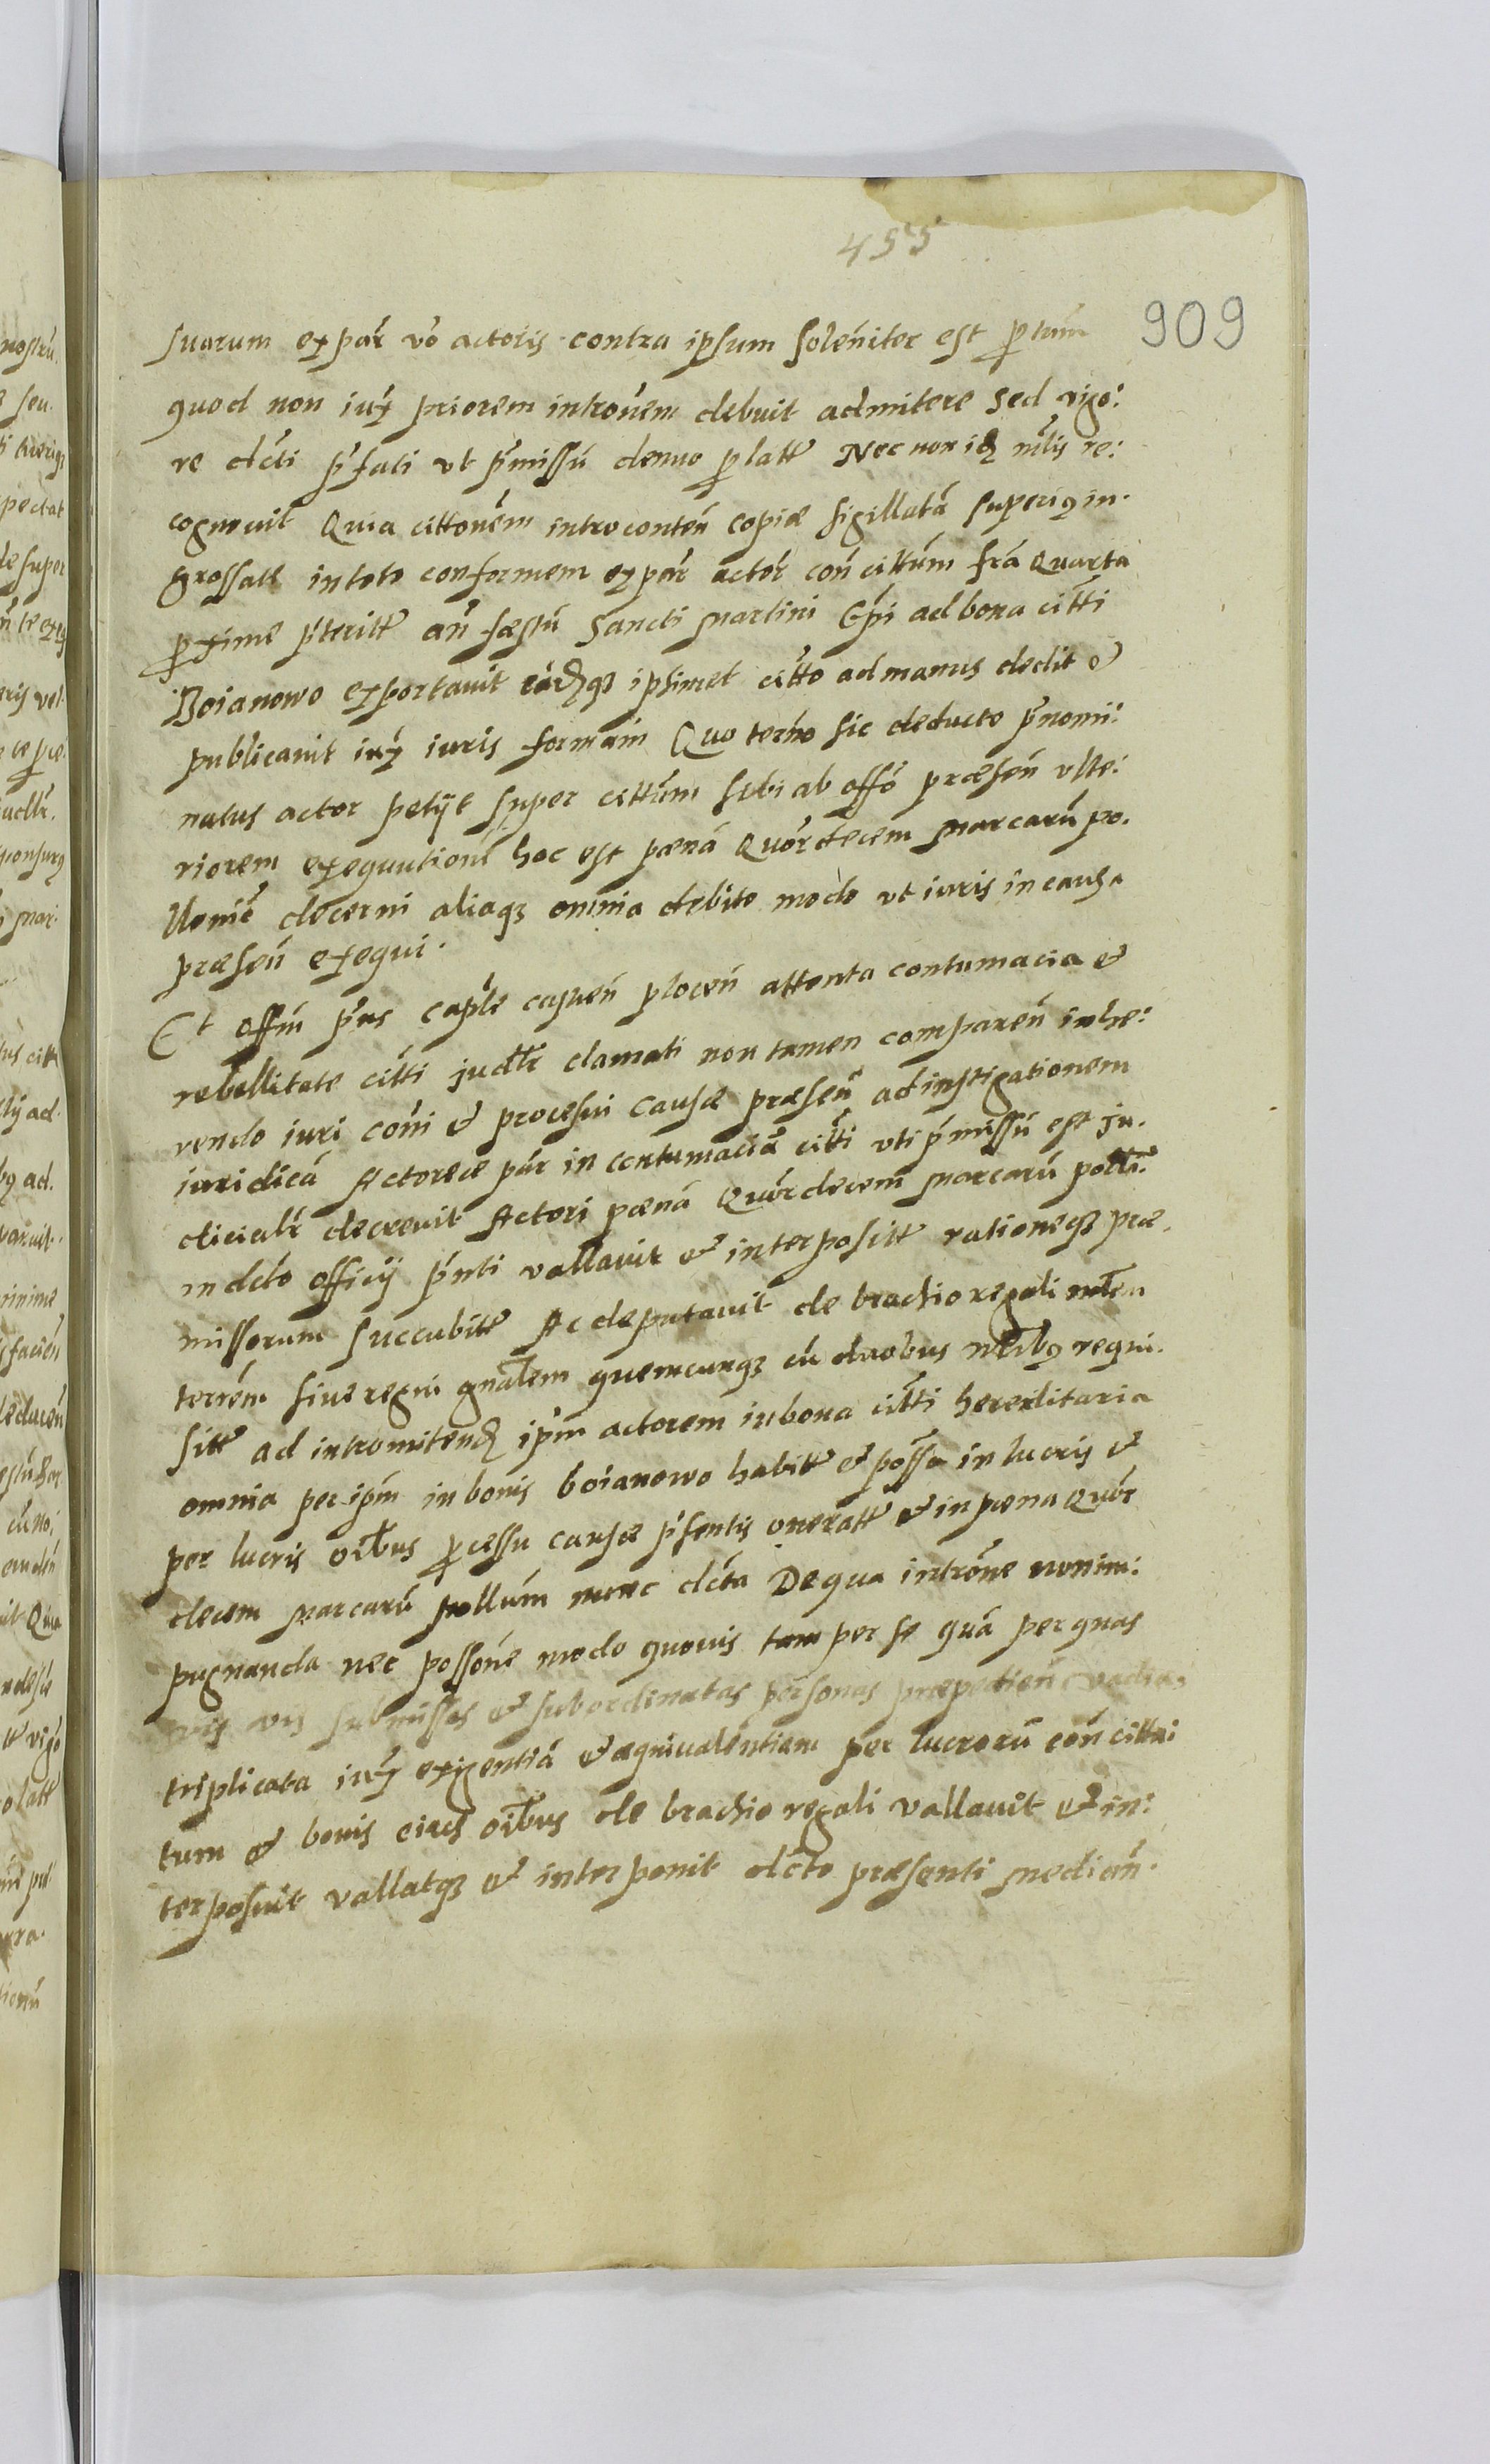 455
909
suarum ex par vo actoris contra ipsum soleniter est ptum
quod non iux priorem intronem debuit admitere sed rigo:
re dcti pfati vt pmissu denuo platt Nec non idz mlis re:
cognovit Quia cittonem introconten copiæ sigillata superius in.
grossatt in toto conformem ex par actor con cittum fra Quarta
pxime pteritt an fæstu Sancti Martini Epi ad bona citti
Boianowo exportavit eadzqz ipsimet citto ad manus dedit &
publicavit iux iuris formam Quo terno sic deducto pnomi:
natus actor petijt super cittum sibi ab offo præsen vlte:
riorem exequutioni hoc est pæna Quordecem Marcaru po.
decerni aliaqz omnia debito modo vt iuris in causa
præsen exequi.
Et offm pns caple casten plocen attenta contumacia &
rebellitate citti judlr clamati non tamen comparen inhe:
rendo iuri coni & procesui causæ præsen ad instigationem
iuridica Actoreæ par in contumacia citti vti pmissu est ju.
dicialr decrevit Actori pæna Quordecem Marcaru polla:
in dcto officij pnti vallavit & interpositt rationeqz præ.
missorum succubitt Ac deputavit de brachio regali mlem
terrem sive regni gnalem quemcunqz cu duobus nlibus requi.
sitt ad intromitendz ipm actorem in bona citti hereditaria
omnia per ipm in bonis boianowo habitt & possa in lucris &
per lucris oibus pcessu causæ psentis oneratt & in pæna Quor
decem Marcaru pollum nunc dcta De qua introne non im:
pugnanda nec possone modo quovis tam per se qua per quas
vis vis submissas & subordinatas personas præpedien vadia
triplicata iux exigentia & æquivalentiam per lucroru con citta:
tum & bonis eius oibus de brachio regali vallavit & in:
terposuit vallatqz & interponit dcto præsenti median.